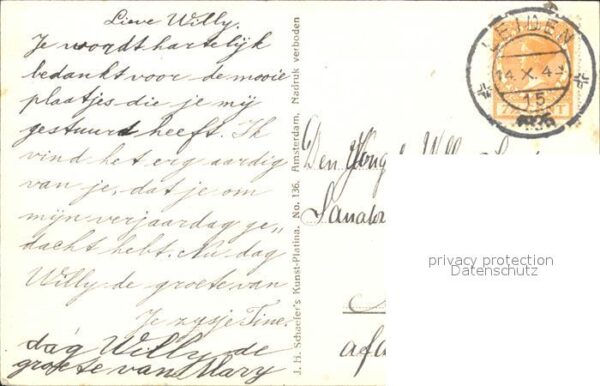 Lieve Willy.
Je wordt hartelijk
bedankt voor de mooie
plaatjes die je mij
gestuurd heeft. Ik
vind het erg aardig
van je, dat je om
mijn verjaardag ge„
dacht hebt. Nu dag
Willy de groete van
Je zusje Tine.
dag Willy de
groete van Mary
J. H. Schaefer's Kunst-Platina. No. 136. Amsterdam. Nadruk verboden
LEIDEN
14.X.4
15
Den Jonge Willy
Sanator
afa
privacy protection
Datenschutz